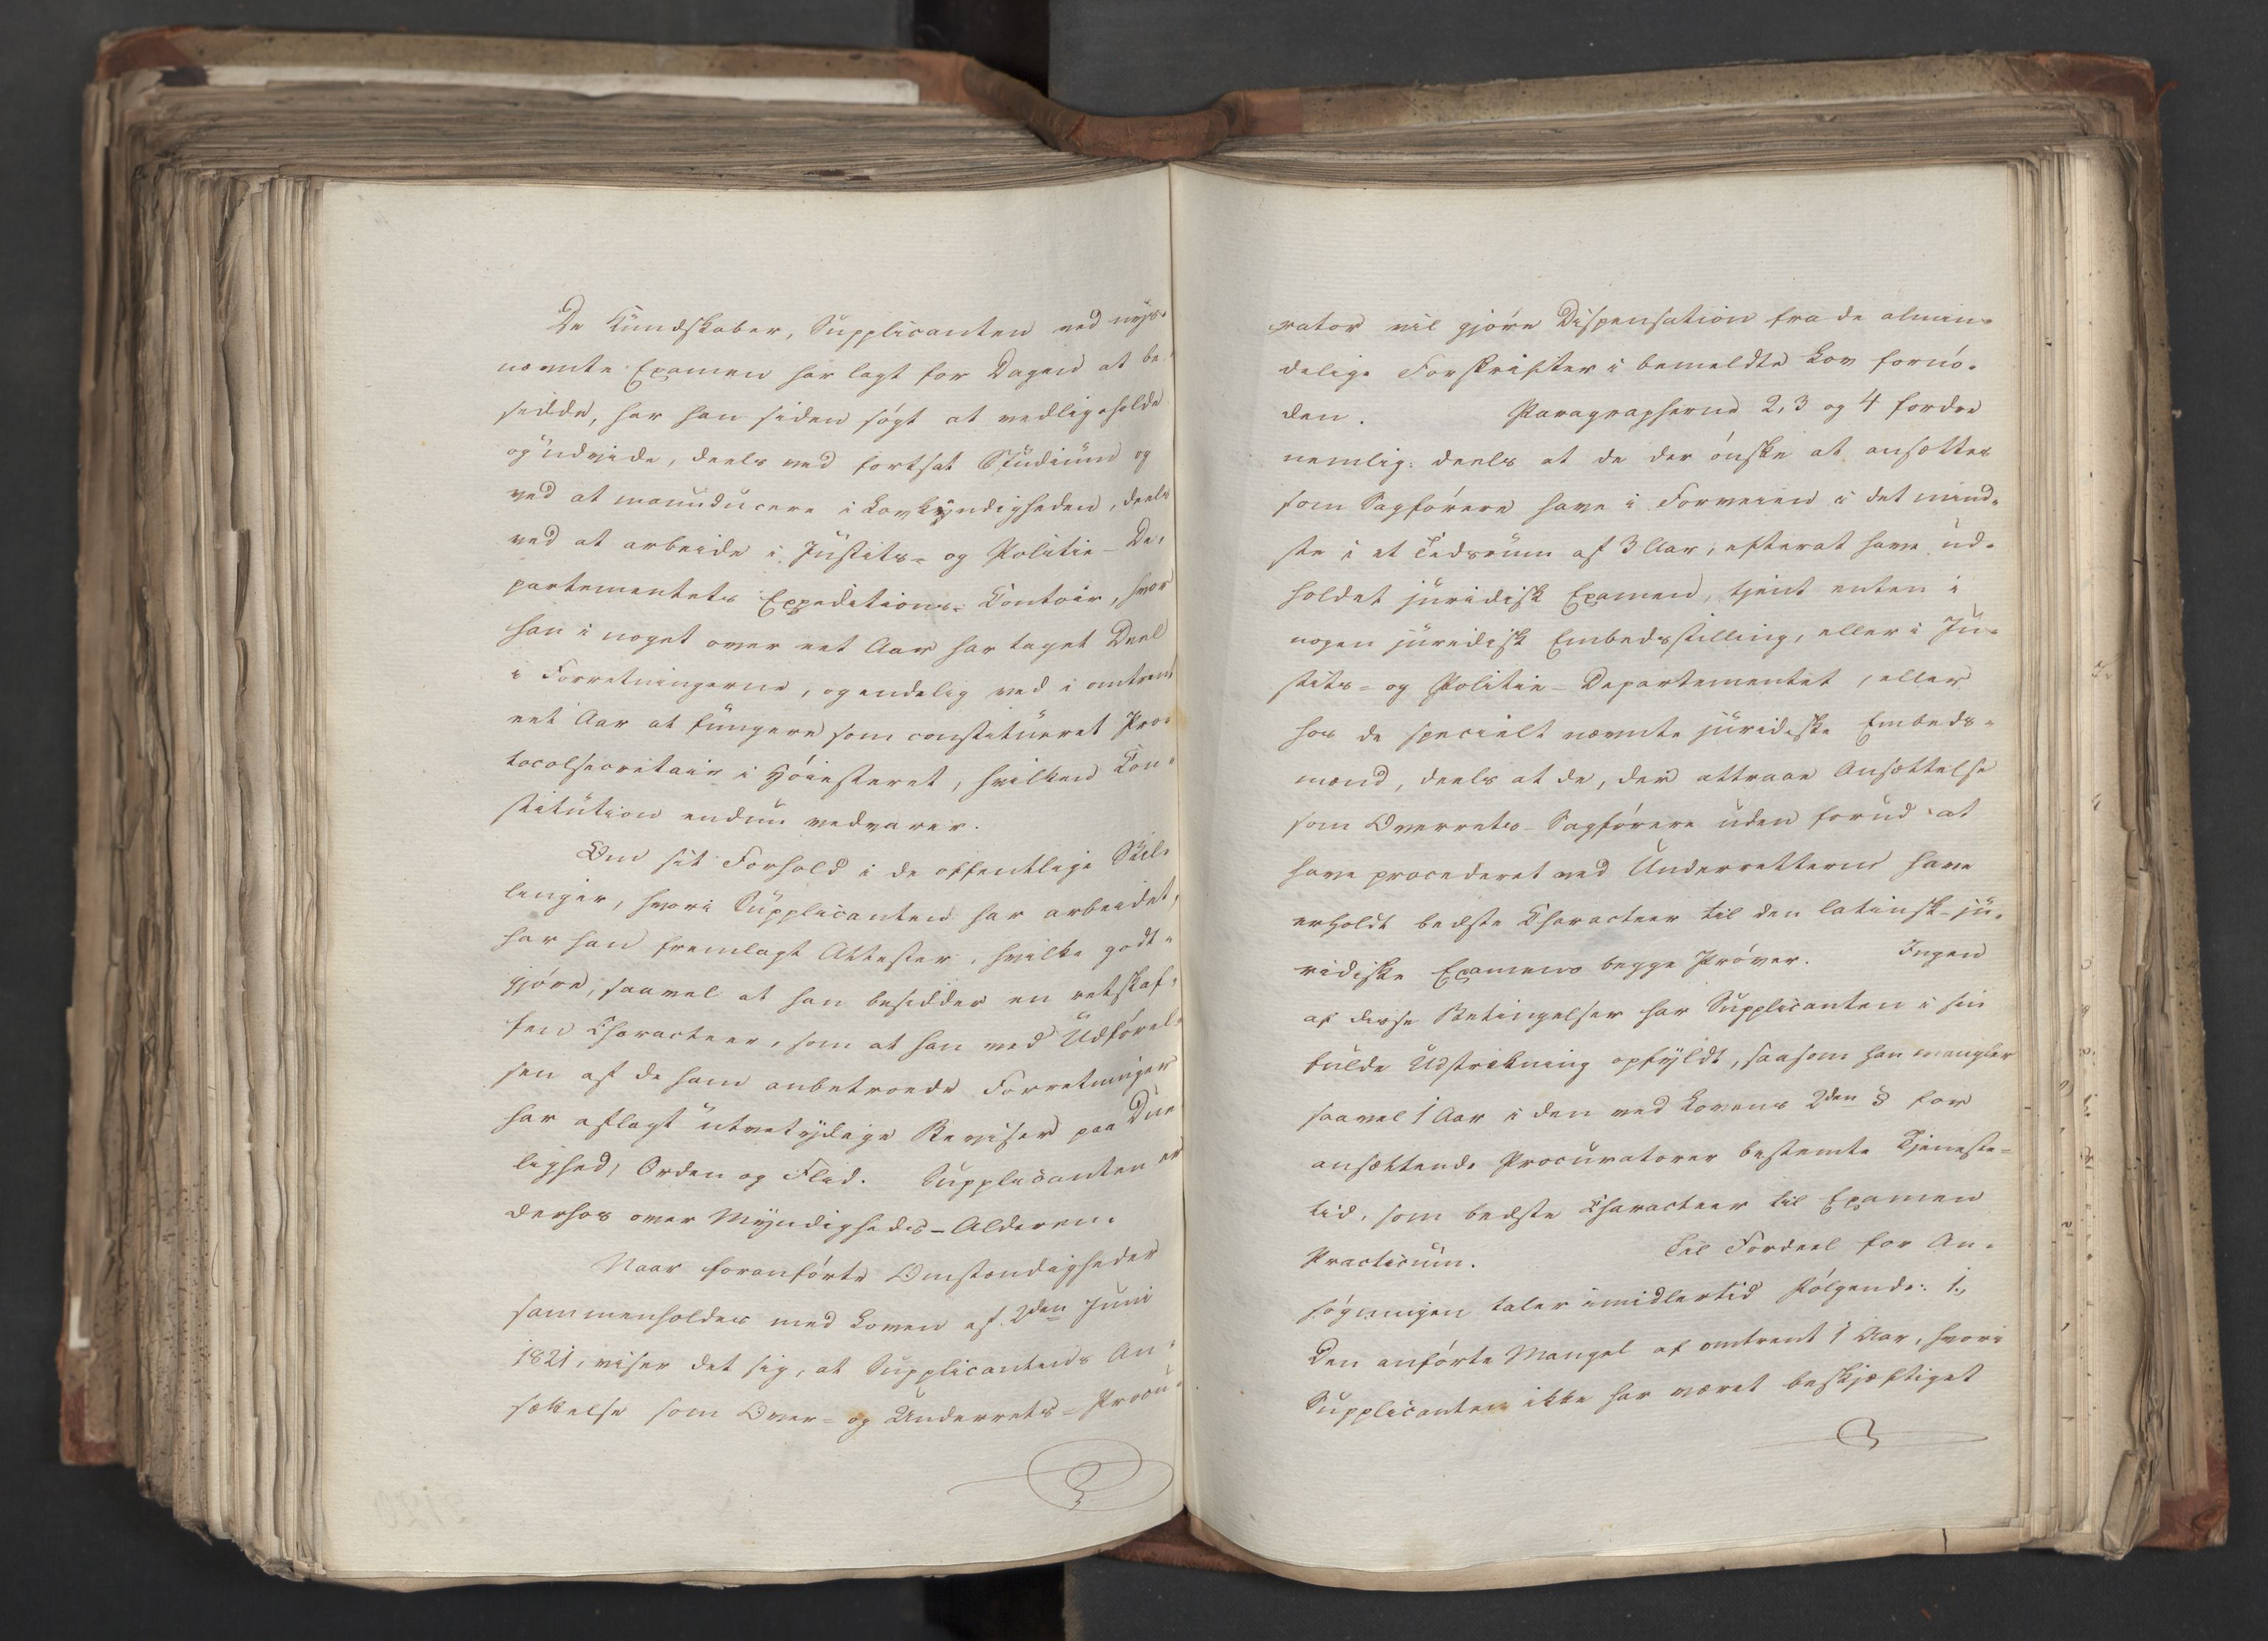 De Kundskaber, Supplicanten ved nys-
nævnte Examen har lagt for Dagen at be-
sidde, har han siden søgt at vedligeholde
og udvide, deels ved fortsat Studium og
ved at manuducere i Lovkyndigheden, deels
ved at arbeide i Justits- og Politie-De-
partementets Expeditions-Contoir, hvor
han i noget over eet Aar har taget Deel
i Forretningerne, og endelig ved i omtrent
eet Aar at fungere som constitueret Pro-
tocolsecretair i Høiesteret, hvilken Con-
stitution endnu vedvarer.
Om sit Forhold i de offentlige Stil-
linger, hvori Supplicanten har arbeidet,
har han fremlagt Attester, hvilke godt-
gjøre, saavel at han besidder en retskaf-
fen Characteer, som at han ved Udførel-
sen af de ham anbetroede Forretninger
har aflagt utvetydige Beviser paa Due-
lighed, Orden og Flid. Supplicanten er
derhos over Myndigheds-Alderen.
Naar foranførte Omstændigheder
sammenholdes med Loven af 2den Juni
1821, viser det sig, at Supplicantens An-
sættelse som Over- og Underrets-Procu-
rator vil gjøre Dispensation fra de almin-
delige Forskrifter i bemeldte Lov fornø-
den. Paragrapherne 2, 3 og 4 fordre
nemlig: deels at de der ønske at ansættes
som Sagførere have i Forveien i det mind-
ste i et Tidsrum af 3 Aar, efterat have ud-
holdet juridisk Examen, tjent enten i
nogen juridisk Embedsstilling, eller i Ju-
stits- og Politie-Departementet, eller
hos de specielt nævnte juridiske Embeds-
mænd, deels at de, der attraae Ansættelse
som Overrets-Sagførere uden forud at
have procederet ved Underretterne have
erholdt bedste Characteer til den latinsk-ju-
ridiske Examens begge Prøver. Ingen
af disse Betingelser har Supplicanten i sin
fulde Udstrekning opfyldt, saasom han mangler
saavel 1 Aar i den ved Lovens 2den § for
ansættende Procuratorer bestemte Tjeneste-
tid, som bedste Characteer til Examen
Practicum. Til Fordeel for An-
søgningen taler imidlertid Følgende: 1.,
Den anførte Mangel af omtrent 1 Aar, hvori
Supplicanten ikke har været beskjæftiget